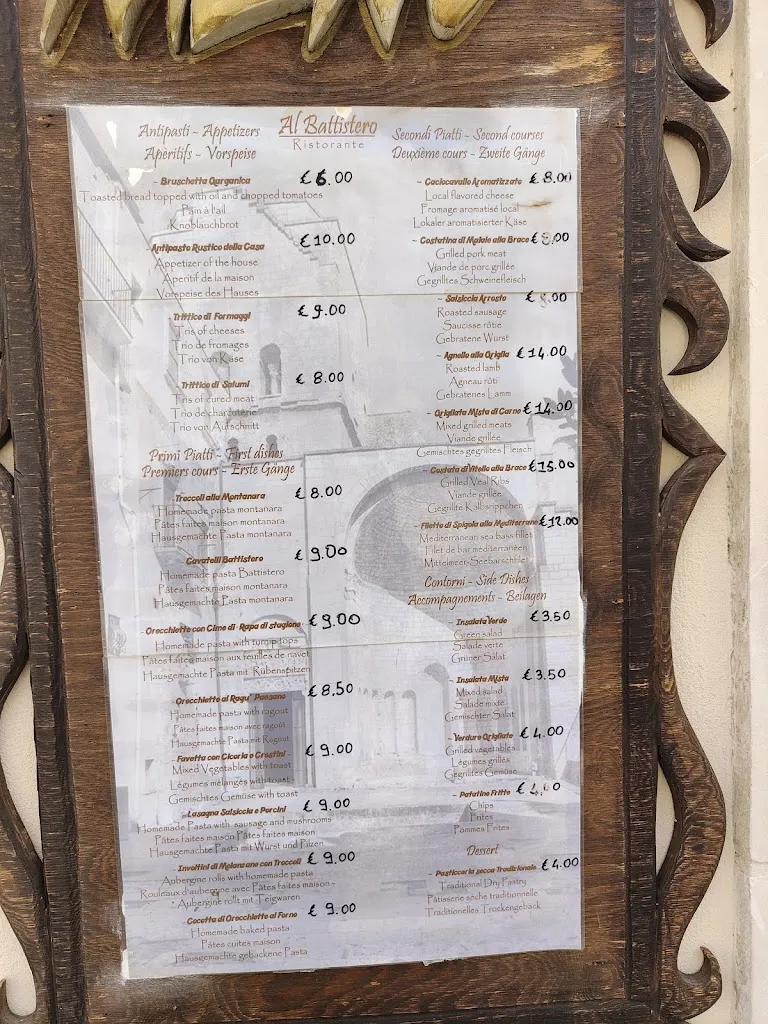 Al Battistero
Ristorante
Antipasti - Appetizers
Apèritifs - Vorspeise
- Bruschetta Garganica € 6.00
Toasted bread topped with oil and chopped tomatoes
Pain à l'ail
Knoblauchbrot
- Antipasto Rustico della Casa € 10.00
Appetizer of the house
Aperitif de la maison
Vorspeise des Hauses
- Trittico di Formaggi € 9.00
Tris of cheeses
Trio de fromages
Trio von Käse
- Trittico di Salumi € 8.00
Tris of cured meat
Trio de charcuterie
Trio von Aufschnitt
Primi Piatti - First dishes
Premiers cours - Erste Gänge
- Troccoli alla Montanara € 8.00
Homemade pasta montanara
Pâtes faites maison montanara
Hausgemachte Pasta montanara
Cavatelli Battistero € 9.00
Homemade pasta Battistero
Pâtes faites maison montanara
Hausgemachte Pasta montanara
- Orecchiette con Cime di Rapa di stagione € 9.00
Homemade pasta with turnip tops
Pâtes faites maison aux feuilles de navet
Hausgemachte Pasta mit Rübenspitzen
Orecchiette al Ragu' Paesano € 8.50
Homemade pasta with ragout
Pâtes faites maison avec ragoût
Hausgemachte Pasta mit Ragout
- Favetta con Cicoria e Crostini € 9.00
Mixed Vegetables with toast
Légumes mélangés with toast -
Gemischtes Gemüse with toast
- Lasagna Salsiccia e Porcini € 9.00
Homemade Pasta with sausage and mushrooms
Pâtes faites maison Pâtes faites maison
Hausgemachte Pasta mit Wurst und Pilzen
- Involtini di Melanzane con Troccoli € 9.00
Aubergine rolls with homemade pasta
Rouleaux d'aubergine avec Pâtes faites maison -
Aubergine rollt mit Teigwaren
- Cocotta di Orecchiette al Forno € 9.00
Homemade baked pasta
Pâtes cuites maison
Hausgemachte gebackene Pasta
Secondi Piatti - Second courses
Deuxième cours - Zweite Gänge
- Caciocavallo Aromatizzato € 8.00
Local flavored cheese
Fromage aromatisé local
Lokaler aromatisierter Käse
- Costatina di Maiale alla Brace € 8.00
Grilled pork meat
Viande de porc grillée
Gegrilltes Schweinefleisch
- Salsiccia Arrosto € .00
Roasted sausage
Saucisse rôtie
Gebratene Wurst
- Agnello alla Griglia € 14.00
Roasted lamb
Agneau rôti
Gebratenes Lamm
- Grigliata Mista di Carne € 14.00
Mixed grilled meats
Viande grillée
Gemischtes gegrilltes Fleisch
- Costata di Vitello alla Brace € 15.00
Grilled Veal Ribs
Viande grillée
Gegrillte Kalbsrippchen
- Filetto di Spigola alla Mediterraneo € 12.00
Mediterranean sea bass fillet
Filet de bar méditerranéen
Mittelmeer-Seebarschfilet
Contorni - Side Dishes
Accompagnements - Beilagen
- Insalata Verde € 3.50
Green salad
Salade verte
Grüner Salat
- Insalata Mista € 3.50
Mixed salad
Salade mixte
Gemischter Salat
- Verdure Grigliate € 4.00
Grilled vegetables
Légumes grillés
Gegrilltes Gemüse
- Patatine Fritte € 4.00
Chips
Frites
Pommes Frites
Dessert
- Pasticceria secca Tradizionale € 4.00
Traditional Dry Pastry
Pâtisserie sèche traditionnelle
Traditionelles Trockengebäck